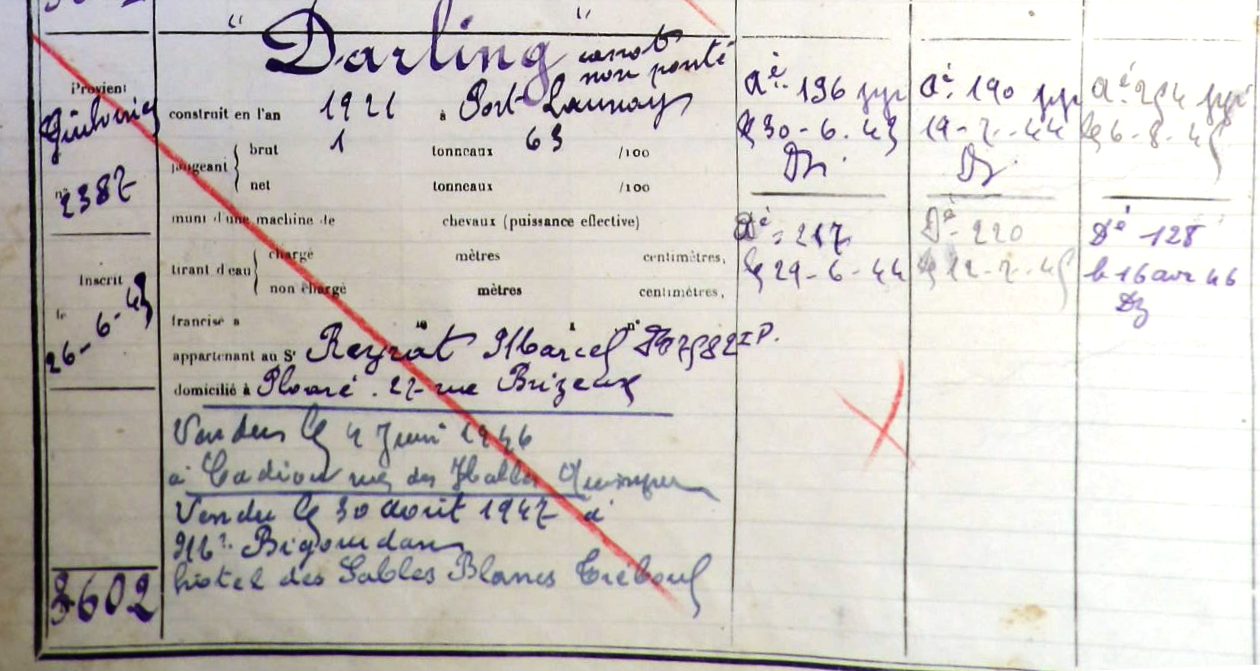 "Darling" canot
non ponté
Provient
Guilvinec
n° 2387
Inscrit
le 26-6-43
3602
construit en l'an 1921 à Port-Launay
jaugeant { brut 1 tonneaux 63 /100
net tonneaux /100
muni d'une machine de chevaux (puissance effective)
tirant d'eau { chargé mètres centimètres,
non chargé mètres centimètres,
francisé à le n°
appartenant au Sr Reyrat Marcel
domicilié à Ploaré. 27 rue Brizeux
Vendu le 4 Juin 1946
à Cadiou rue des Halles Quimper
Vendu le 30 août 1947 à
Mr. Bigourdan
hôtel des Sables Blancs Tréboul
Aé. 196
le 30-6-43
Dé = 217
le 29-6-44
Aé. 190
19-7-44
Dé = 220
le 12-7-45
Aé. 254
le 6-8-45
Dé 128
le 16 avr 46